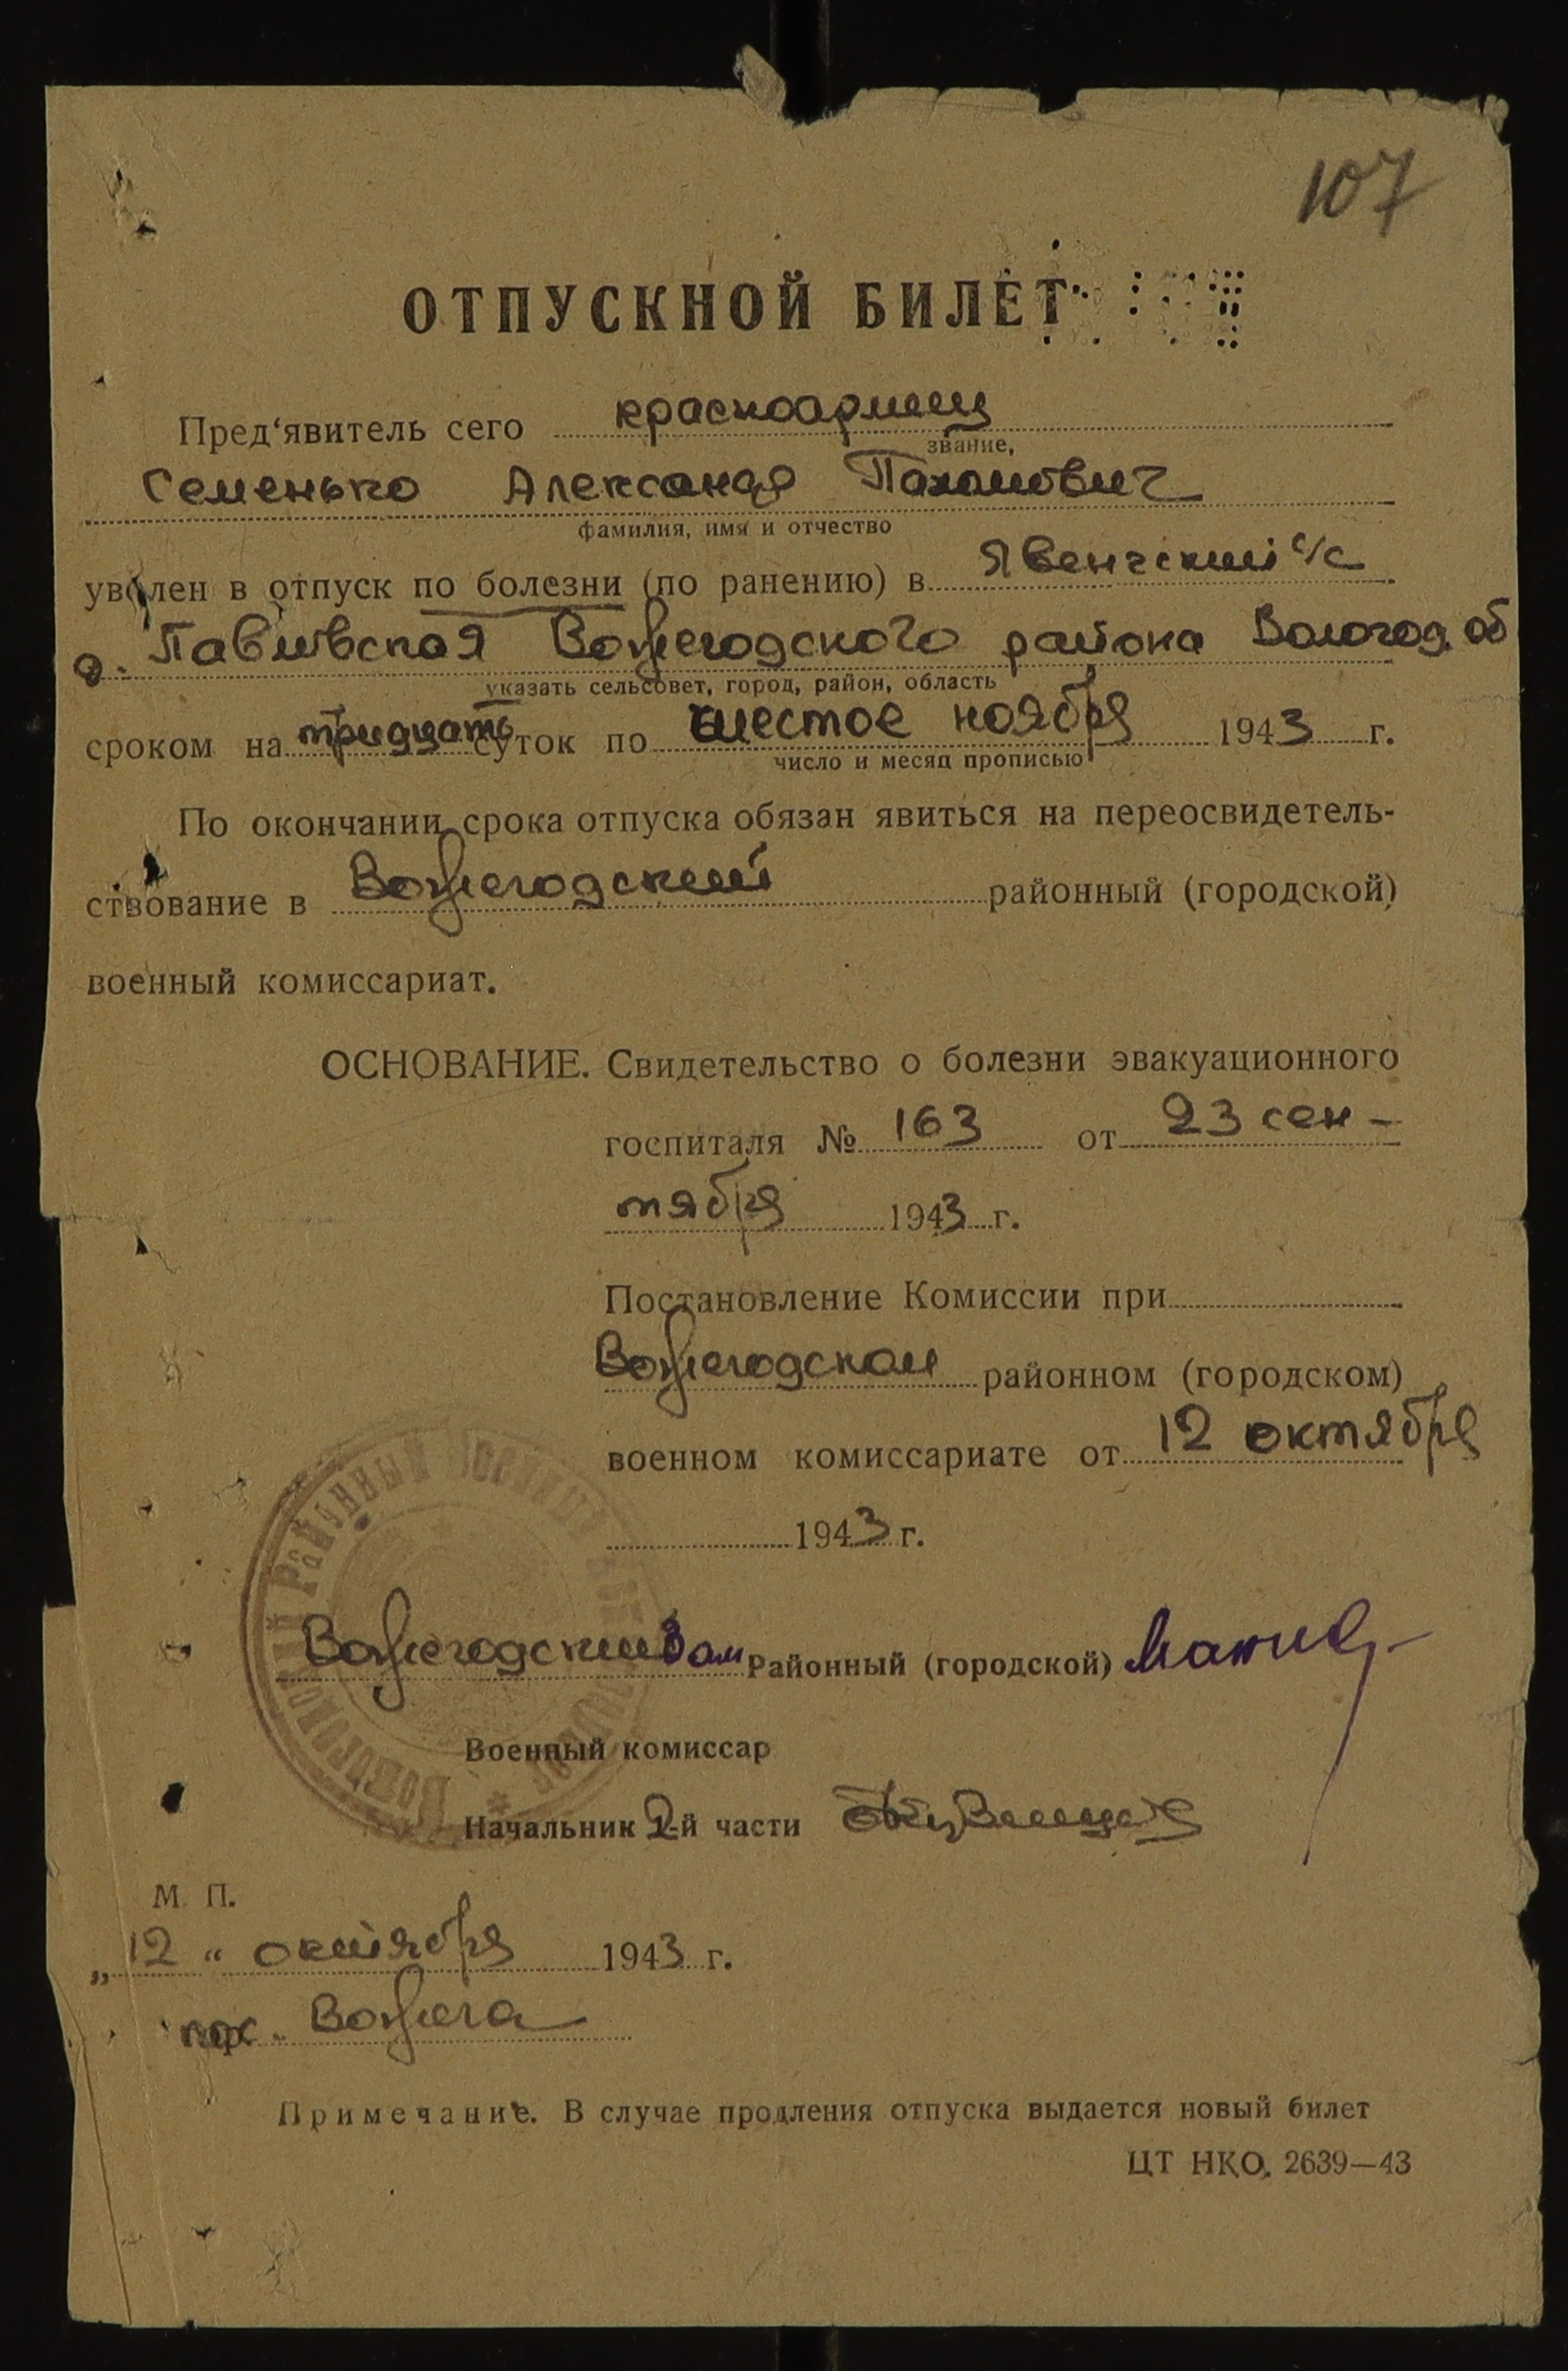 107
ОТПУСКНОЙ БИЛЕТ
Пред'явитель сего красноармеец
звание,
Семенько Александр Пахомович
фамилия, имя и отчество
уволен в отпуск по болезни (по ранению) в Явенгский с/с
д. Павшовская Вожегодского района Вологод. об
указать сельсовет, город, район, область
сроком на тридцать суток по шестое ноября 1943 г.
число и месяц прописью
По окончании срока отпуска обязан явиться на переосвидетель-
ствование в Вожегодский районный (городской)
военный комиссариат.
ОСНОВАНИЕ. Свидетельство о болезни эвакуационного
госпиталя № 163 от 23 сен-
тября 1943 г.
Постановление Комиссии при
Вожегодском районном (городском)
военном комиссариате от 12 октября
1943 г.
Вожегодский Зам Районный (городской)
Военный комиссар
Начальник 2-й части
М. П.
„12“ октября 1943 г.
пос. Вожега
Примечание. В случае продления отпуска выдается новый билет
ЦТ НКО. 2639—43